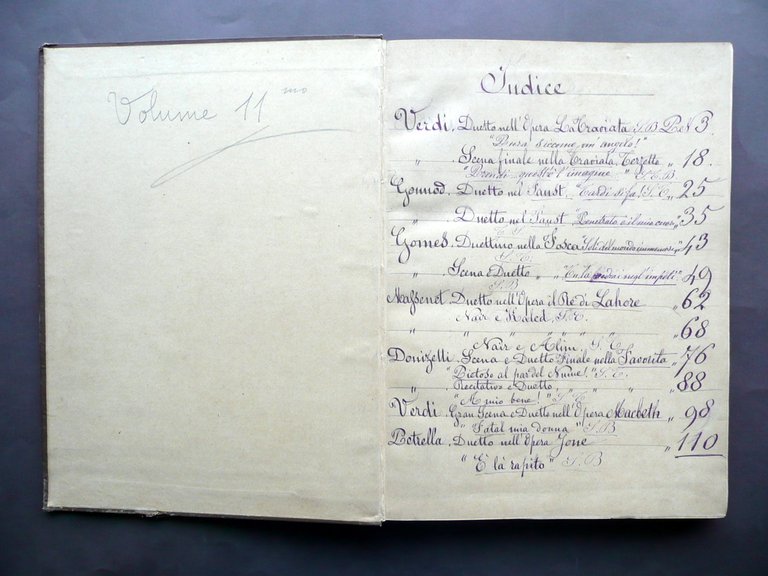 Volume 11 mo
Indice
Verdi. Duetto nell'Opera La Traviata S. B Pe. N 3
"Pura siccome un' angelo!"
" Scena finale nella Traviata Terzetto " 18
"Prendi quest'è l'imagine" S. T. B
Gounod. Duetto nel Faust "Tardi si fa! S. T. " 25
" Duetto nel Faust "Penetrato è il mio cuor " 35
Gomes. Duettino nella Fosca " 43
S. T.
" Scena e Duetto " " negl'impeti " 49
S. B
Massenet. Duetto nell'Opera il Re di Lahore " 62
Nair e Kaled. S. T.
" " " " " " " 68
Nair e Alim. S. T.
Donizetti. Scena e Duetto Finale nella Favorita " 76
"Pietoso al par del Nume!" S. T.
" Recitativo e Duetto " " " 88
"A mio bene!" S. T.
Verdi. Gran Scena e Duetto nell'Opera Macbeth " 98
"Fatal mia donna" S. B
Petrella. Duetto nell'Opera Jone " 110
"È là rapito" S. B